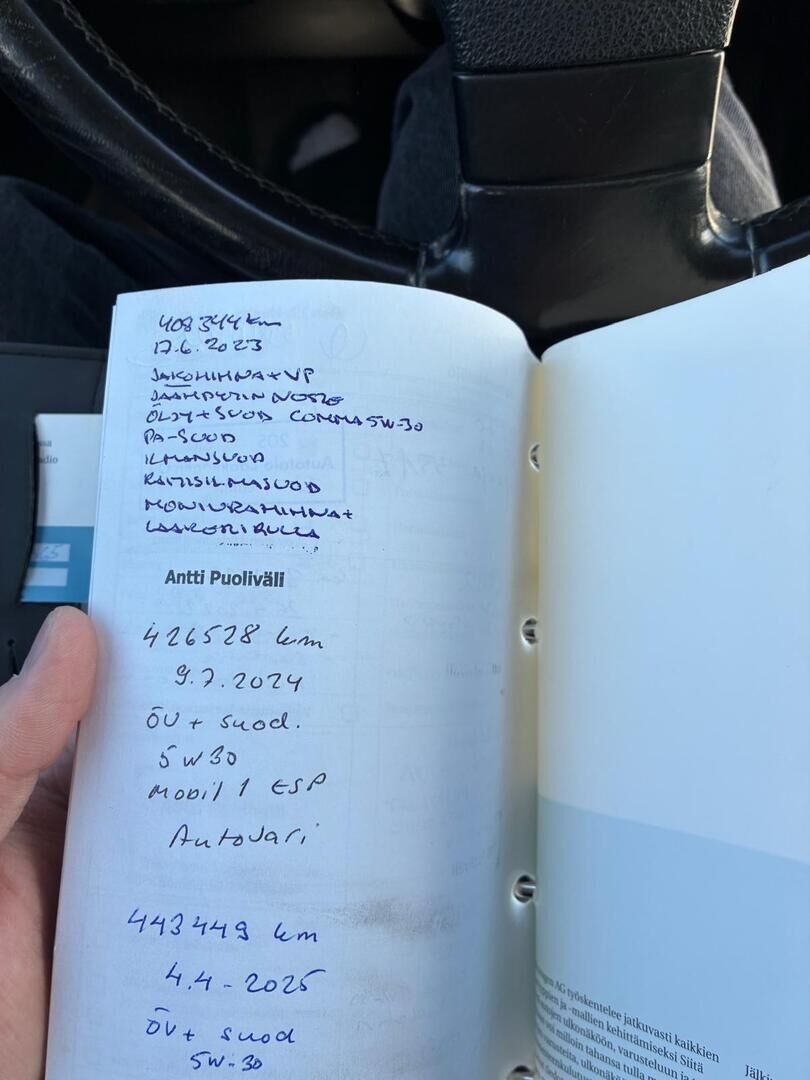 408344 km
17.6.2023
JAKOHIHNA+VP
JÄÄHDYTIN NESTE
ÖLJY+SUOD COMMA 5W-30
PA-SUOD
ILMANSUOD
RAITISILMASUOD
MONIURAHIHNA+
LAAKERIRULLA
Antti Puoliväli
426528 km
9.7.2024
ÖV + suod.
5W30
Mobil 1 ESP
Autovari
443449 km
4.4-2025
ÖV+ suod
5W-30
AG työskentelee jatkuvasti kaikkien
ja -mallien kehittämiseksi Siitä
ulkonäköön, varusteluun ja
milloin tahansa tulla
Jälki